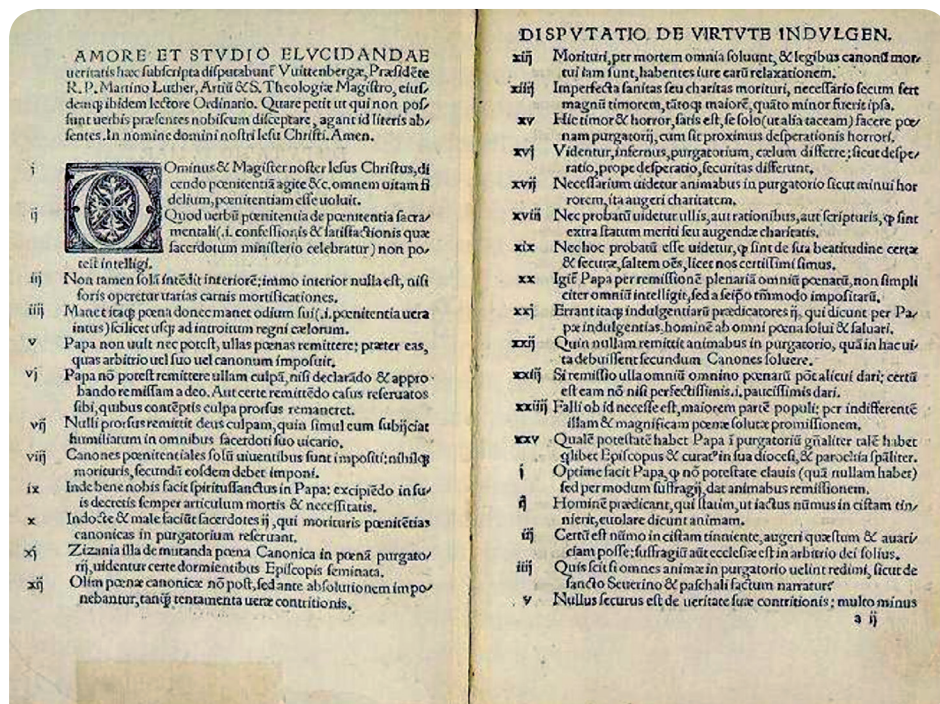 AMORE ET STVDIO ELVCIDANDAE
ueritatis hæc subscripta disputabunt Vuittenbergæ, Præsidēte
R. P. Martino Luther, Artiū & S. Theologiæ Magistro, eius/
demq; ibidem lectore Ordinario. Quare petit ut qui non pos/
sunt uerbis præsentes nobiscum disceptare, agant id literis ab/
sentes. In nomine domini nostri Iesu Christi. Amen.
i DOminus & Magister noster Iesus Christus, di
cendo pœnitentiā agite &c. omnem uitam fi
delium, pœnitentiam esse uoluit.
ij Quod uerbū pœnitentia de pœnitentia sacra/
mentali (.i. confessionis & satisfactionis quæ
sacerdotum ministerio celebratur) non po/
test intelligi.
iij Non tamen solā intēdit interiorē: immo interior nulla est, nisi
foris operetur uarias carnis mortificationes.
iiij Manet itaq; pœna donec manet odium sui (.i. pœnitentia uera
intus) scilicet usq; ad introitum regni cælorum.
v Papa non uult nec potest, ullas pœnas remittere; præter eas,
quas arbitrio uel suo uel canonum imposuit.
vj Papa nō potest remittere ullam culpā, nisi declarādo & appro
bando remissam a deo. Aut certe remittēdo casus reseruatos
sibi, quibus contēptis culpa prorsus remaneret.
vij Nulli prorsus remittit deus culpam, quin simul eum subijciat
humiliatum in omnibus sacerdoti suo uicario.
viij Canones pœnitentiales solū uiuentibus sunt impositi: nihilq;
morituris, secundū eosdem debet imponi.
ix Inde bene nobis facit spiritussanctus in Papa: excipiēdo in su/
is decretis semper articulum mortis & necessitatis.
x Indocte & male faciūt sacerdotes ij, qui morituris pœnitētias
canonicas in purgatorium reseruant.
xj Zizania illa de mutanda pœna Canonica in pœnā purgato/
rij, uidentur certe dormientibus Episcopis seminata.
xij Olim pœnæ canonicæ nō post, sed ante absolutionem impo/
nebantur, tanq; tentamenta ueræ contritionis.
DISPVTATIO DE VIRTVTE INDVLGEN.
xiij Morituri, per mortem omnia soluunt, & legibus canonū mor/
tui iam sunt, habentes iure earū relaxationem.
xiiij Imperfecta sanitas seu charitas morituri, necessario secum fert
magnū timorem, tātoq; maiorē, quāto minor fuerit ipsa.
xv Hic timor & horror, satis est, se solo (ut alia taceam) facere pœ/
nam purgatorij, cum sit proximus desperationis horrori.
xvj Videntur, infernus, purgatorium, cælum differre: sicut despe/
ratio, prope desperatio, securitas differunt.
xvij Necessarium uidetur animabus in purgatorio sicut minui hor
rorem, ita augeri charitatem.
xviij Nec probatū uidetur ullis, aut rationibus, aut scripturis, ꝙ sint
extra statum meriti seu augendæ charitatis.
xix Nec hoc probatū esse uidetur, ꝙ sint de sua beatitudine certæ
& securæ, saltem oēs, licet nos certissimi simus.
xx Igit̄ Papa per remissionē plenariā omniū pœnarū, non simpli
citer omniū intelligit, sed a seipo tm̄modo impositarū.
xxj Errant itaq; indulgentiarū prædicatores ij, qui dicunt per Pa/
pæ indulgentias, hominē ab omni pœna solui & saluari.
xxij Quin nullam remittit animabus in purgatorio, quā in hac ui/
ta debuissent secundum Canones soluere.
xxiij Si remissio ulla omniū omnino pœnarū pōt alicui dari; certū
est eam nō nisi perfectissimis .i. paucissimis dari.
xxiiij Falli ob id necesse est, maiorem partē populi: per indifferentē
illam & magnificam pœnæ solutæ promissionem.
xxv Qualē potestatē habet Papa ī purgatoriū gn̄aliter talē habet
q̄libet Episcopus & curat9 in sua diocesi, & parochia sp̄aliter.
i Optime facit Papa, ꝙ nō potestate clauis (quā nullam habet)
sed per modum suffragij, dat animabus remissionem.
ij Hominē prædicant, qui statim, ut iactus nūmus in cistam tin/
nierit, euolare dicunt animam.
iij Certū est nūmo in cistam tinniente, augeri quæstum & auari/
ciam posse; suffragiū aūt ecclesiæ est in arbitrio dei solius.
iiij Quis scit si omnes animæ in purgatorio uelint redimi, sicut de
sancto Seuerino & paschali factum narratur?
v Nullus securus est de ueritate suæ contritionis; multo minus
a ij